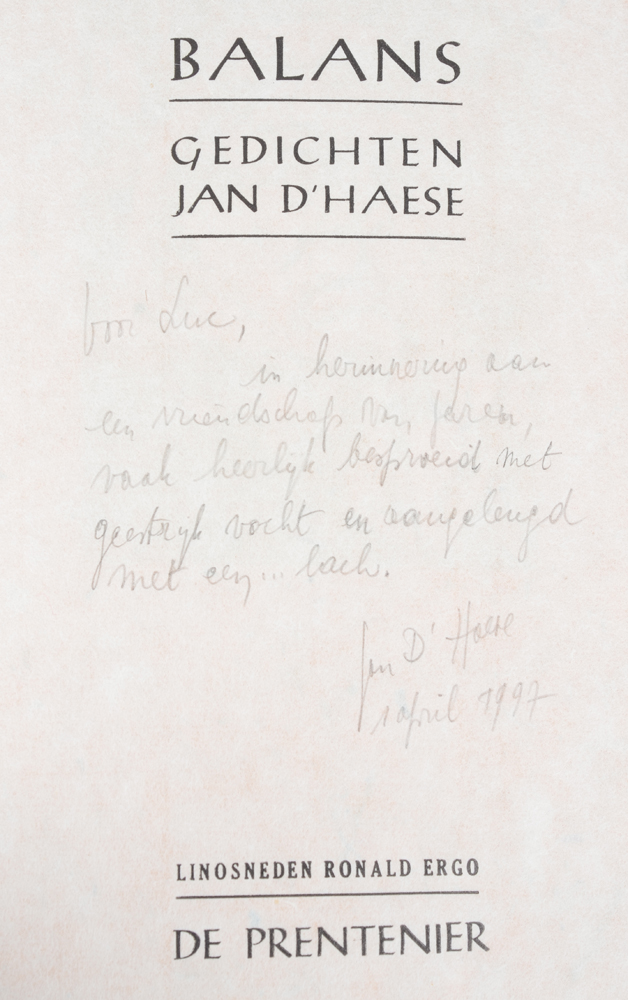 BALANS
GEDICHTEN
JAN D'HAESE
voor Luc,
in herinnering aan
een vriendschap van jaren,
vaak heerlijk besproeid met
geestrijk vocht en aangelengd
met een... lach.
Jan D'Haese
1 april 1997
LINOSNEDEN RONALD ERGO
DE PRENTENIER